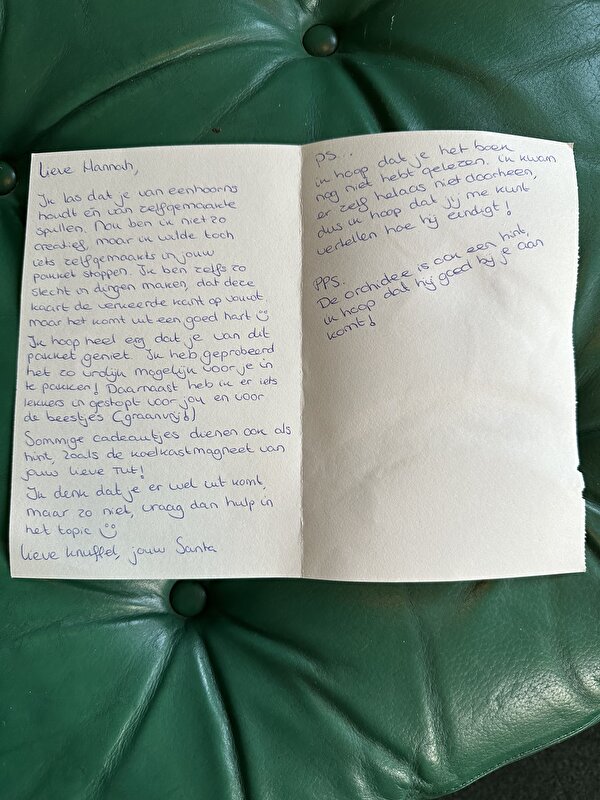 Lieve Hannah,
Ik las dat je van eenhoorns
houdt én van zelfgemaakte
spullen. Nou ben ik niet zo
creatief, maar ik wilde toch
iets zelfgemaakts in jouw
pakket stoppen. Ik ben zelfs zo
slecht in dingen maken, dat deze
kaart de verkeerde kant op vouwt.
maar het komt uit een goed hart
Ik hoop heel erg dat je van dit
pakket geniet. Ik heb geprobeerd
het zo vrolijk mogelijk voor je in
te pakken! Daarnaast heb ik er iets
lekkers in gestopt voor jou en voor
de beestjes (graanvrij!)
Sommige cadeautjes dienen ook als
hint, zoals de koelkastmagneet van
jouw lieve Tut!
Ik denk dat je er wel uit komt,
maar zo niet, vraag dan hulp in
het topic
Lieve knuffel, jouw Santa
PS...
ik hoop dat je het boek
nog niet hebt gelezen. ik kwam
er zelf helaas niet doorheen,
dus ik hoop dat jij me kunt
vertellen hoe hij eindigt!
PPS.
De orchidee is ook een hint,
ik hoop dat hij goed bij je aan
komt!